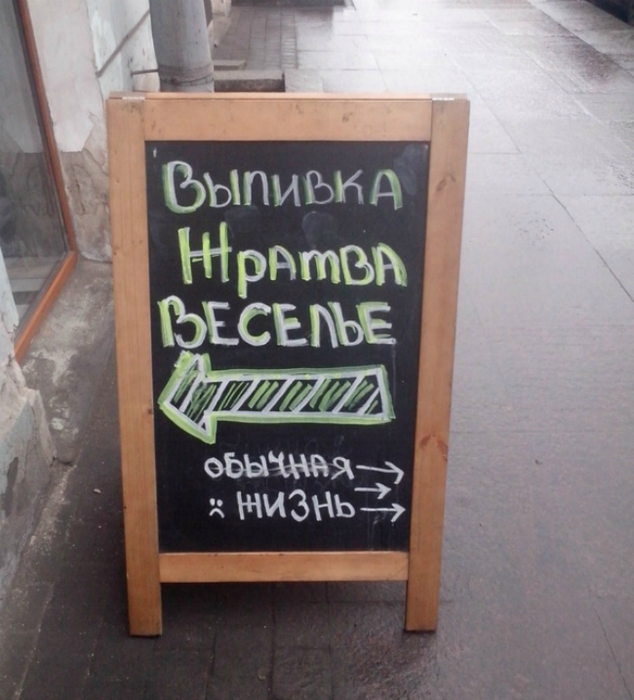 Выпивка
Жратва
ВЕСЕЛЬЕ
ОБЫЧНАЯ →
→
:( ЖИЗНЬ →